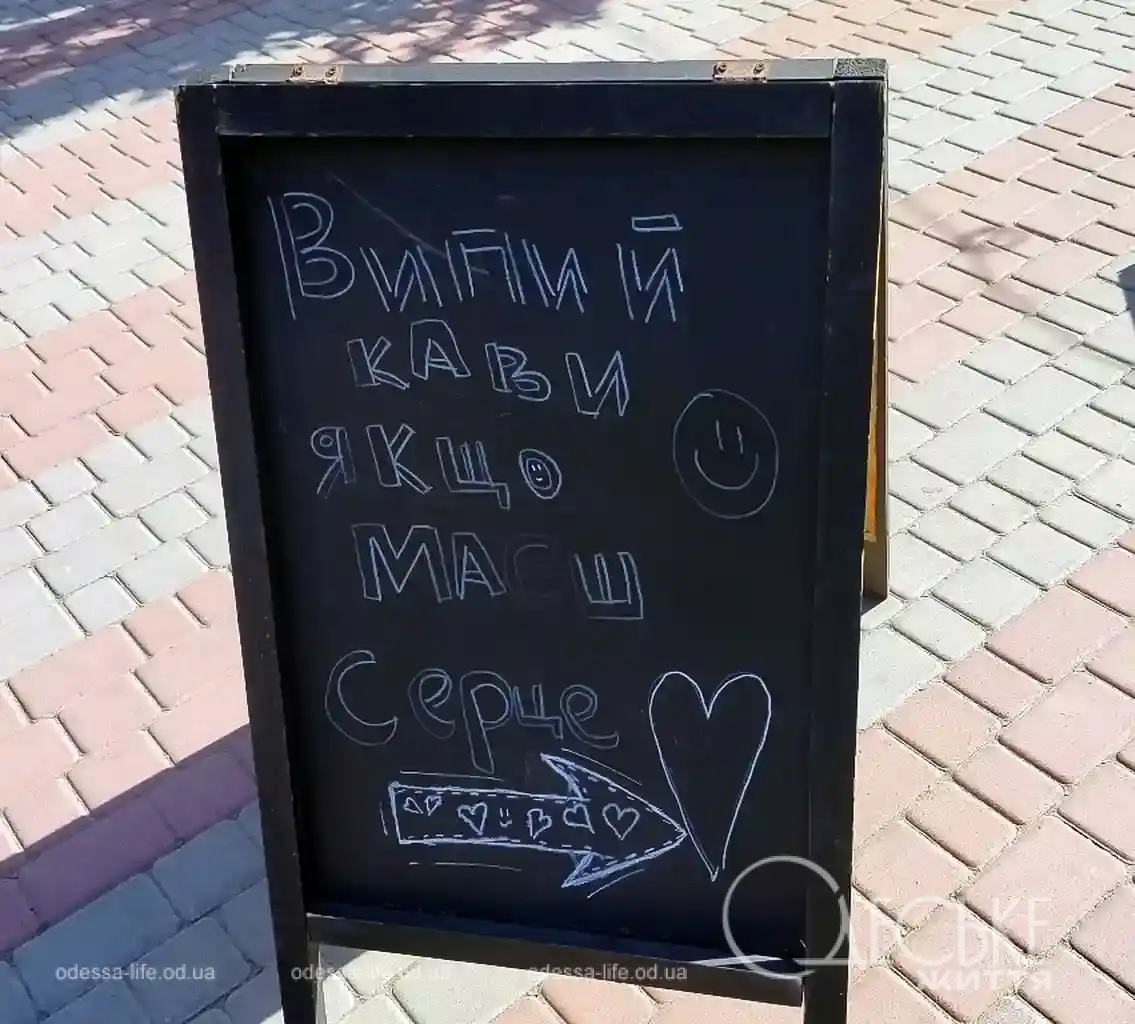 Випий
КАВИ
ЯКЩО
МАЄШ
Серце
ОДЕСЬКЕ
ЖИТТЯ
odessa-life.od.ua odessa-life.od.ua odessa-life.od.ua